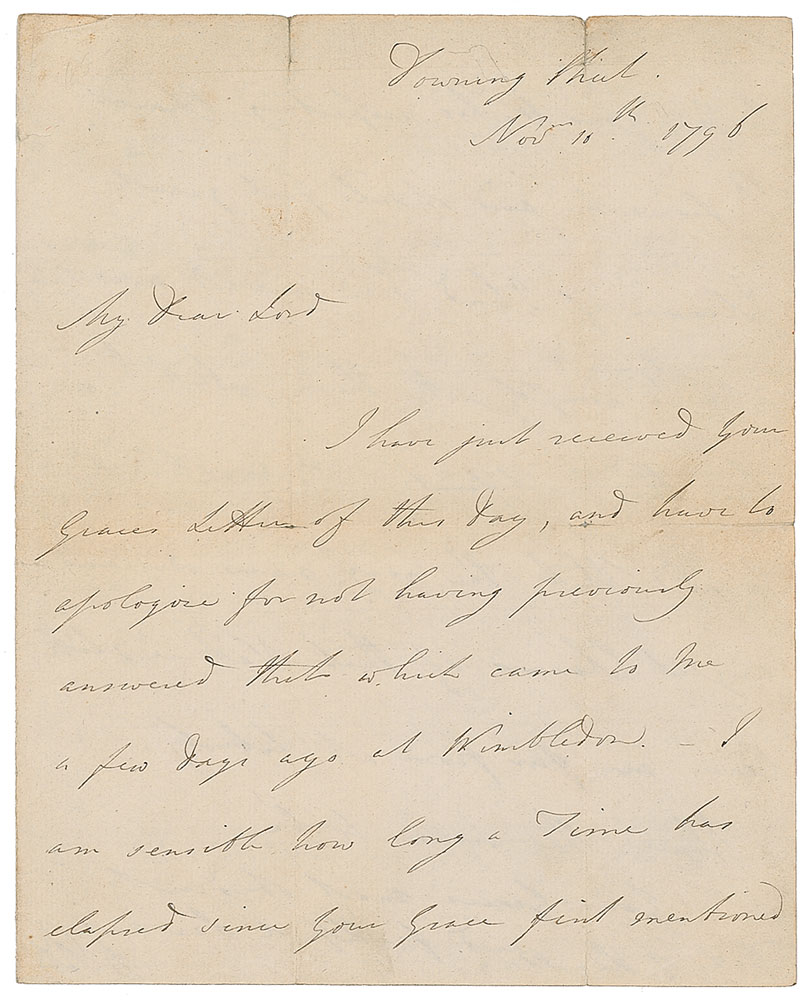 Downing Street.
Novr. 10th. 1796
My Dear Lord
I have just received Your
Graces Letter of this Day, and have to
apologize for not having previously
answered that which came to me
a few Days ago at Wimbledon. – I
am sensible how long a Time has
elapsed since Your Grace first mentioned